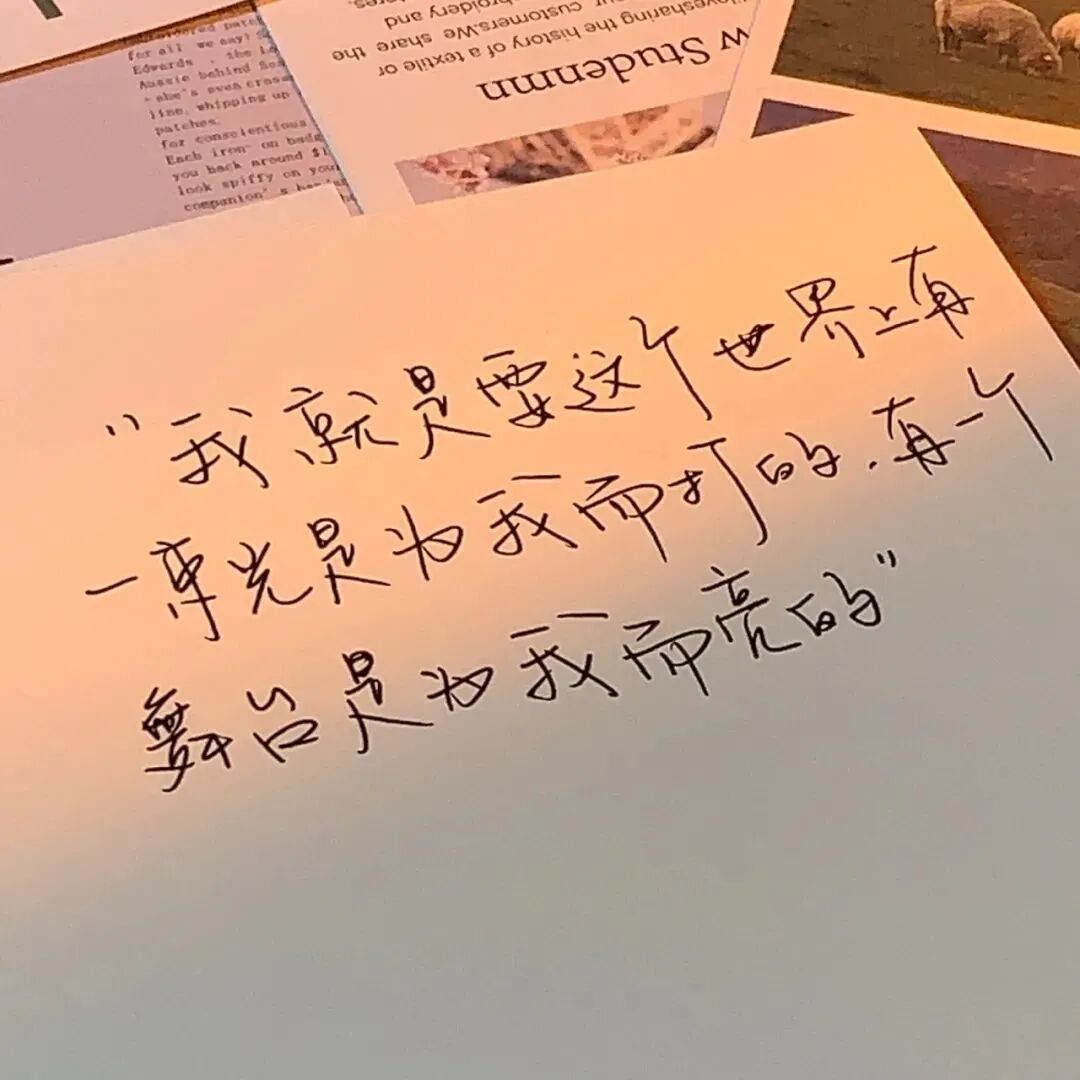 for all we say!
Edwards - she
Aussie behind
- she's even
line, whipping up
patches.
for conscientious
Each iron-on
you back around
look spiffy on
companion's
w Studenmn
the history of a textile or
customers.We share the
and
"我就是要这个世界上有
一束光是为我而打的.有一个
舞台是为我而亮的"